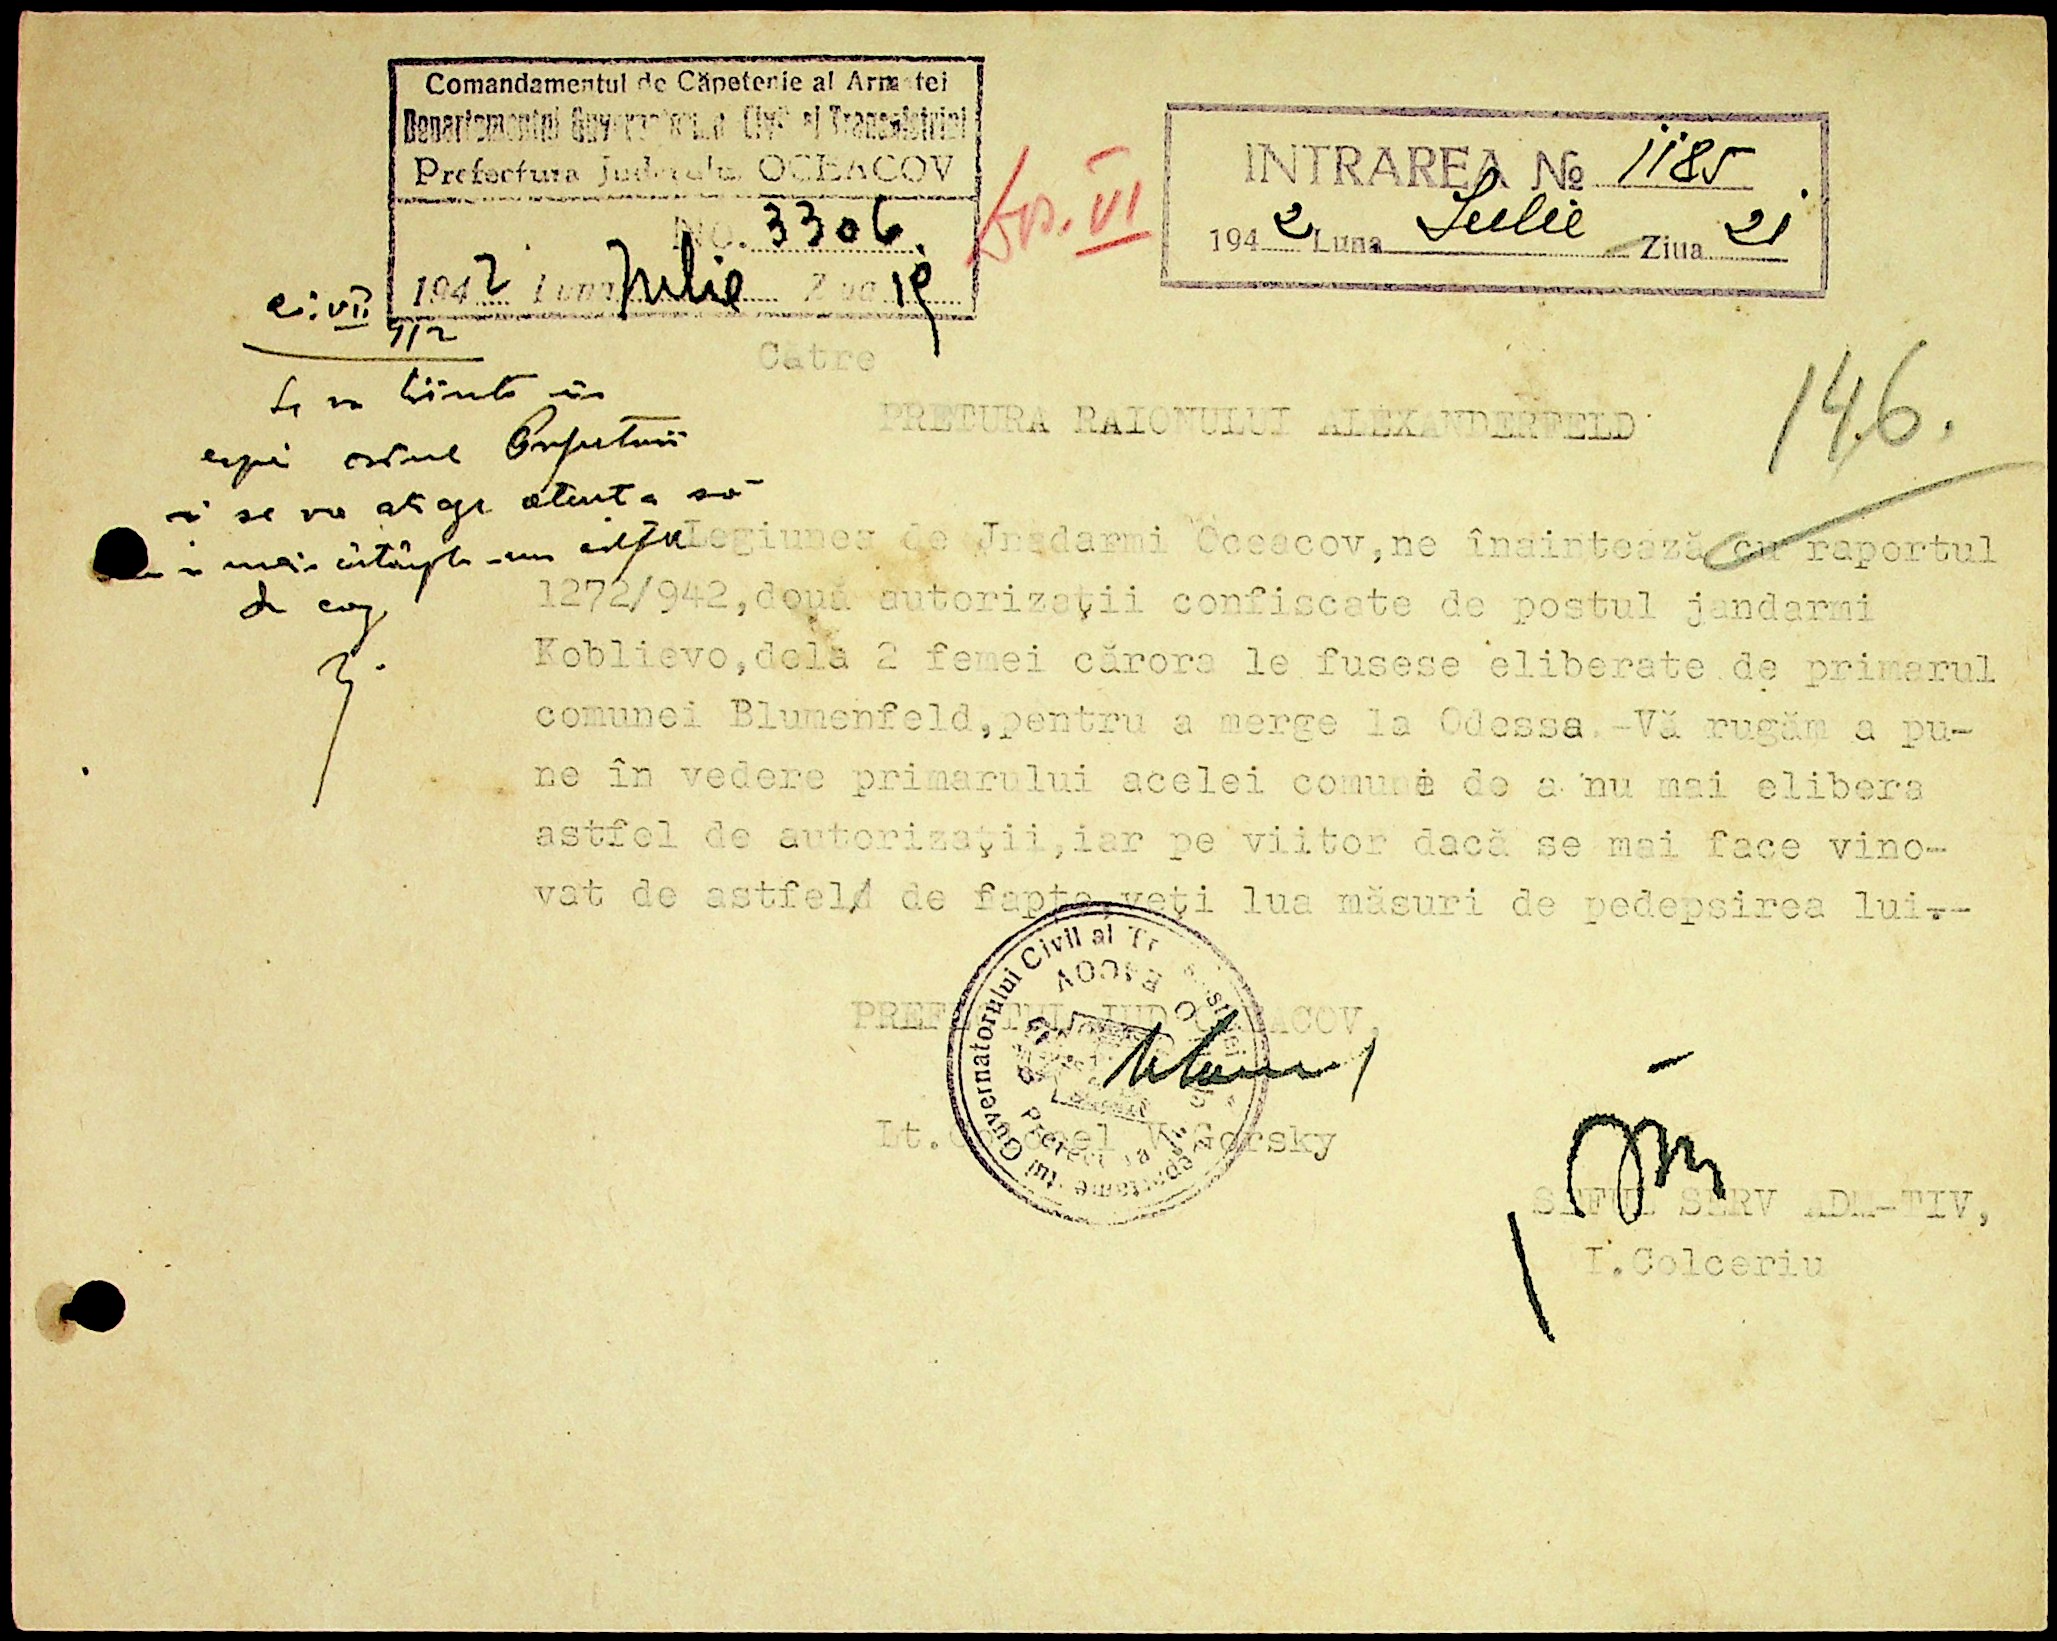 Comandamentul de Căpetenie al Armatei
Departamentul Guvernatorul Civil al Transnistriei
Prefectura Județului OCEACOV
No. 3306.
1942 Luna Iulie Ziua 19
Do. VI
INTRAREA № 1185
1942 Luna Iulie Ziua 21
146.
VII
Către
PRETURA RAIONULUI ALEXANDERFELD
ordinul Prefeturii
se va atrage
Legiunea de Jnadarmi Oceacov,ne înaintează cu raportul
1272/942,două autorizaţii confiscate de postul jandarmi
Koblievo,dela 2 femei cărora le fusese eliberate de primarul
comunei Blumenfeld,pentru a merge la Odessa.-Vă rugăm a pu-
ne în vedere primarului acelei comune de a nu mai elibera
astfel de autorizaţii,iar pe viitor dacă se mai face vino-
vat de astfel de fapte,veţi lua măsuri de pedepsirea lui.--
PREFECTUL JUD OCEACOV,
Lt.Colonel V.Gorsky
Guvernatorului Civil al Transnistriei
Prefectura
OCEACOV
SEFUL SERV ADM-TIV,
I.Colceriu